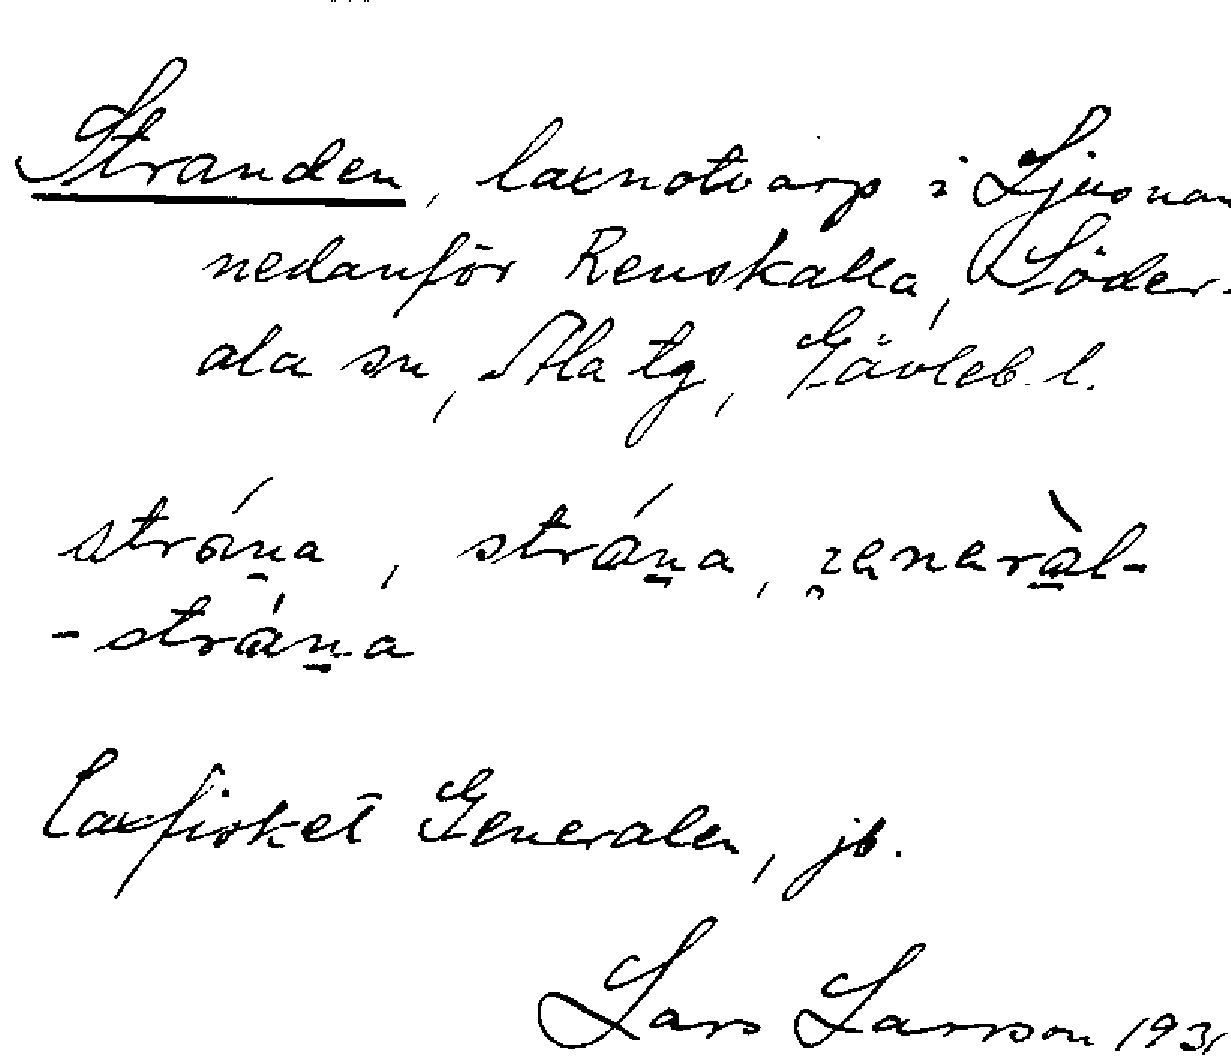 Stranden, laxnotvarp i Ljusnan
nedanför Renskalla, Söder-
ala sn, Ala tg, Gävleb. l.
strána, strána, ʒenaràl-
-strána
Laxfisket Generalen, jb.
Lars Larsson 193